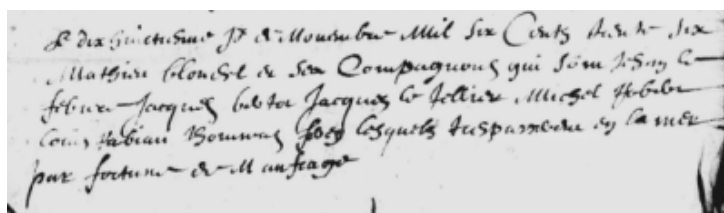 Le dix huictiesme Jr de Novembre Mil six Cents trente six
Mathieu blondel et ses Compagnons qui sont Jehan le
febvre Jacques Jacques le Tellier Michel
Louis fabian lesquels trespasserent en la mer
par fortune de Naufrage